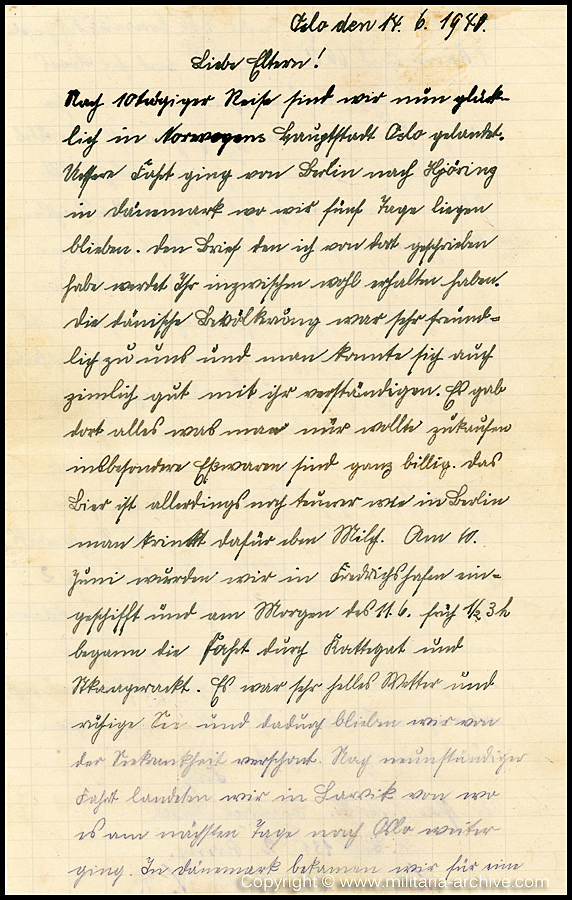 Oslo den 14. 6. 1940.
Liebe Eltern!
Nach 10tägiger Reise sind wir nun glück-
lich in Norwegens Hauptstadt Oslo gelandet.
Unsere Fahrt ging von Berlin nach Hjöring
in Dänemark wo wir fünf Tage liegen
blieben. Den Brief den ich von dort geschrieben
habe werdet Ihr inzwischen wohl erhalten haben.
Die dänische Bevölkrung war sehr freund-
lich zu uns und man konnte sich auch
zimlich gut mit ihr verständigen. Es gab
dort alles was man nur wollte zukaufen
insbesondere Eßwaren sind ganz billig. Das
Bier ist allerdings noch teurer wie in Berlin
man trinkt dafür eben Milch. Am 10.
Juni wurden wir in Fredrichshafen ein-
geschifft und am Morgen des 11.6. früh 1/2 3 h
begann die Fahrt durch Kattegat und
Skaagerackt. Es war sehr helles Wetter und
ruhige See und dadurch blieben wir von
der Seekrankheit verschont. Nach neunständiger
Fahrt landeten wir in Larvik von wo
es am nächsten Tage nach Oslo weiter
ging. In Dänemark bekamen wir für eine
Copyright © www.militaria-archive.com